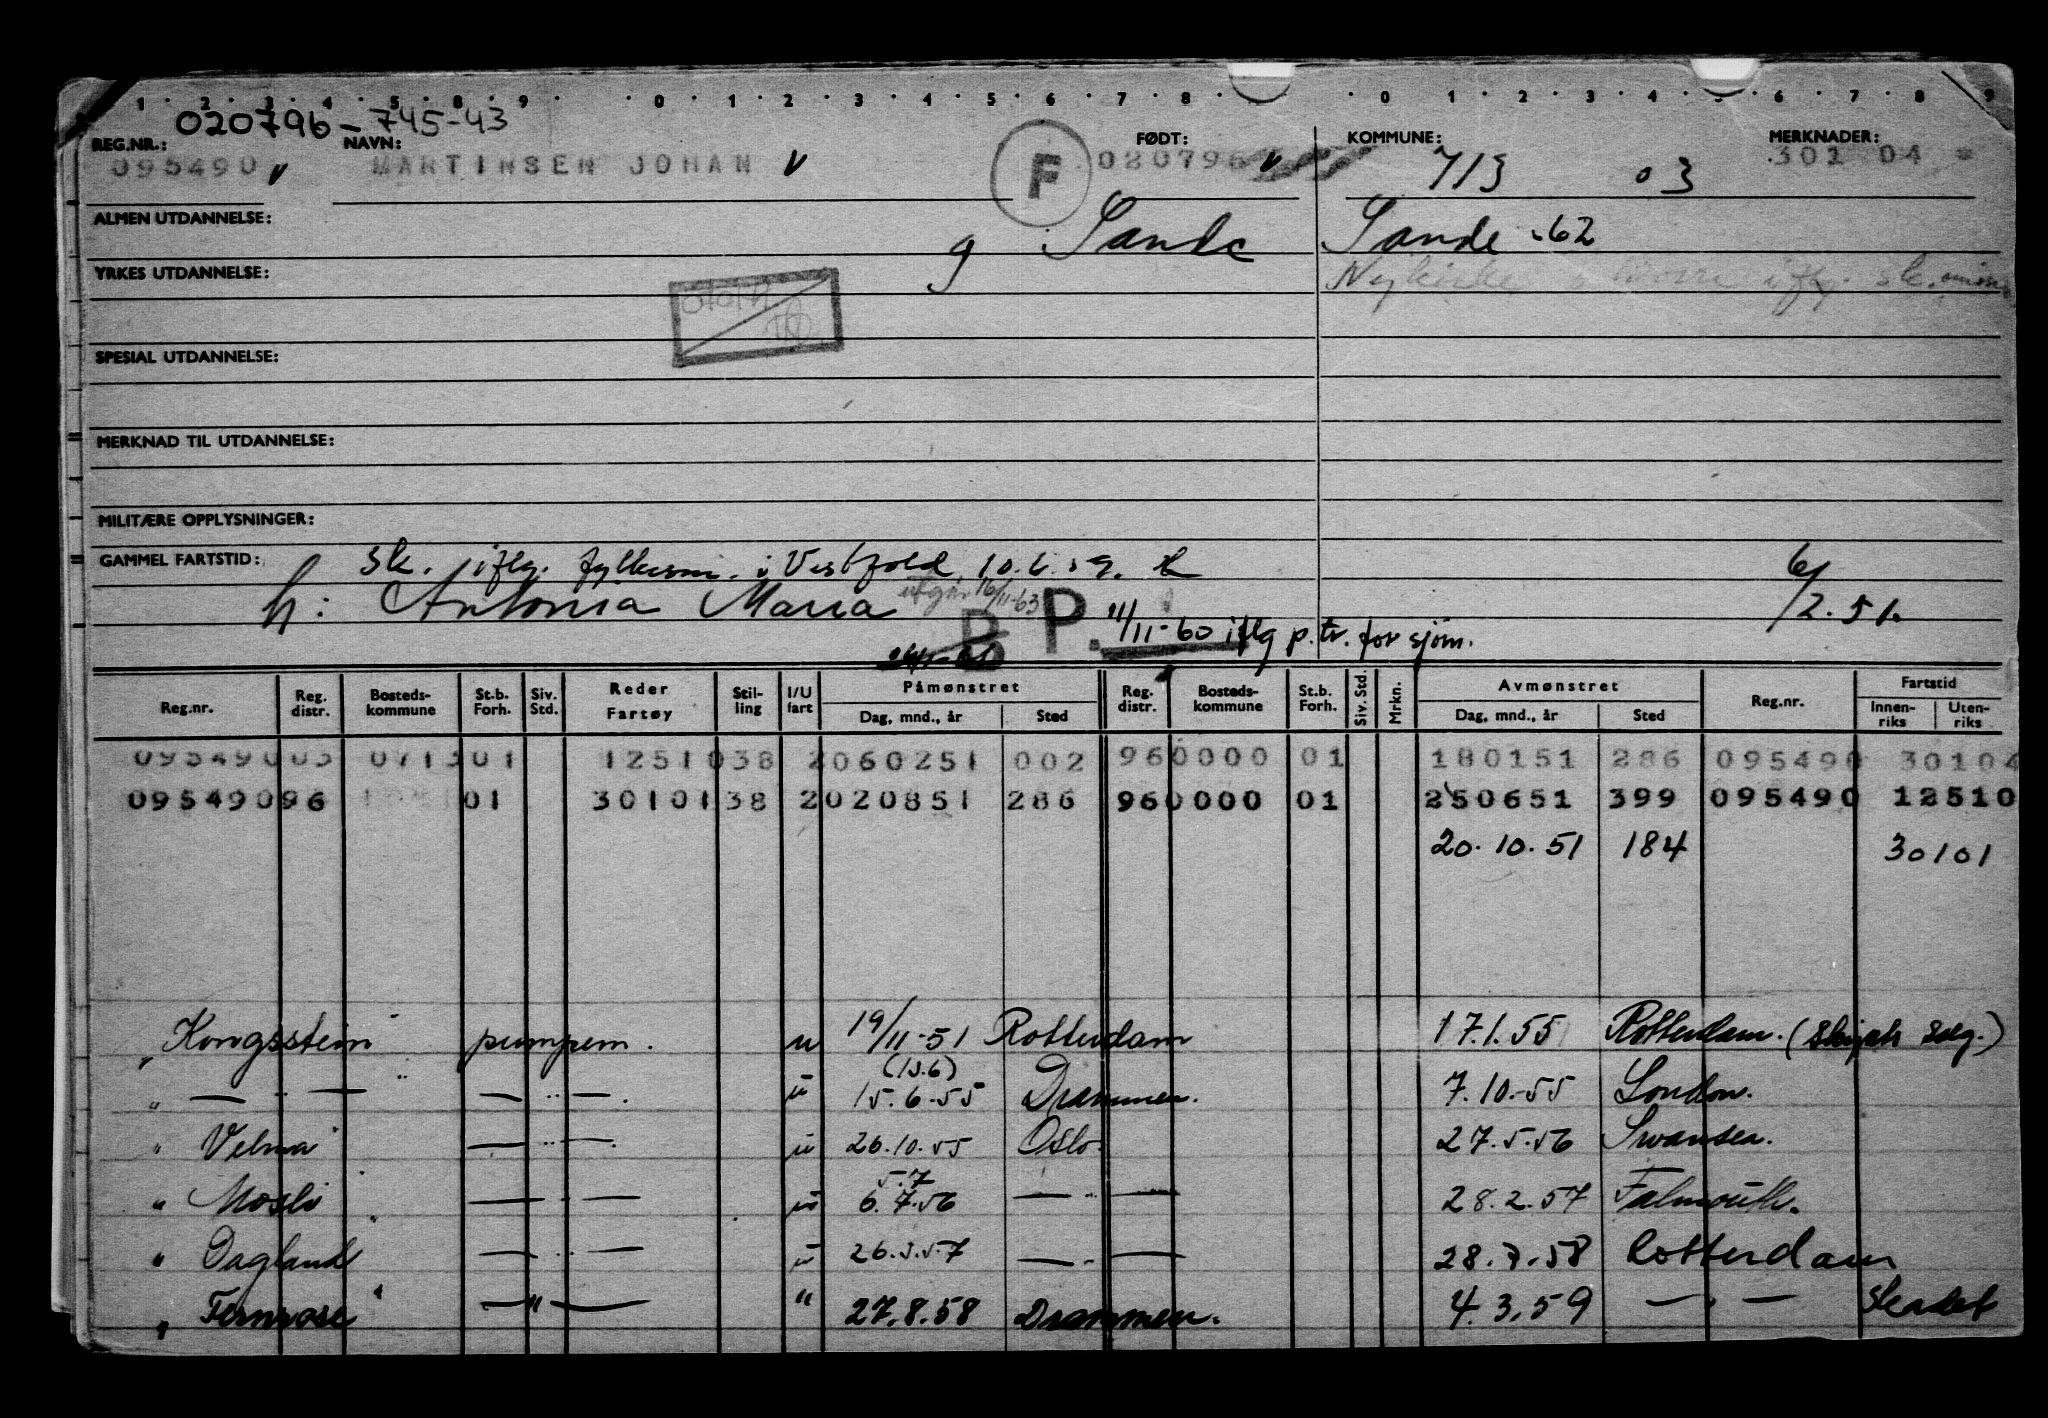 1 · 2 · 3 · 4 · 5 · 8 · 9 · · 0 · 1 · 2 · 3 · 4 · 5 · 6 · 7 · 8 · · 0 · 1 · 2 · 3 · 4 · 5 · 6 · 7 · 8 · 9
020796-745-43
REG.NR.: NAVN: FØDT: KOMMUNE: MERKNADER:
095490 v MARTINSEN JOHAN v F 020796 v 713 03 301 04
ALMEN UTDANNELSE: g Sande Sande .62
YRKES UTDANNELSE: Nykirke
SPESIAL UTDANNELSE:
MERKNAD TIL UTDANNELSE:
MILITÆRE OPPLYSNINGER:
GAMMEL FARTSTID: sk. iflg. fylkesm. i Vestfold 10.6.59.
h: Antonia Maria utgår 16/11-63 6/2.51.
P. 11/11-60 iflg p.tr. for sjøm.
Reg.nr. Reg. distr. Bosteds-kommune St.b. Forh. Siv. Std. Reder Fartøy Stil-ling I/U fart Påmønstret Dag, mnd., år Sted Reg. distr. Bosteds-kommune St.b. Forh. Siv. Std. Mrkn. Avmønstret Dag, mnd., år Sted Reg.nr. Fartstid Innen-riks Uten-riks
09549003 071301 1251038 2060251 002 960000 01 180151 286 095490 30104
09549096 01 3010138 2020851 286 960000 01 250651 399 095490 12510
20.10.51 184 30101
" Kongsstein" pumpem. u 19/11-51 Rotterdam 17.1.55 Rotterdam. (Skipets salg.)
(15.6)
" — " — " — " — . u 15.6.55 Drammen. 7.10.-55 London.
" Velma" — " — u 26.10.55 Oslo. 27.5.56 Swansea.
5.7
" Mosli" — " — u 6.7.56 — " — 28.2.57 Falmouth.
" Dagland" — " — u 26.5.57 — " — 28.7.58 Rotterdam
" Fernrose" — " — " 27.8.58 Drammen. 4.3.59 — " — skadet